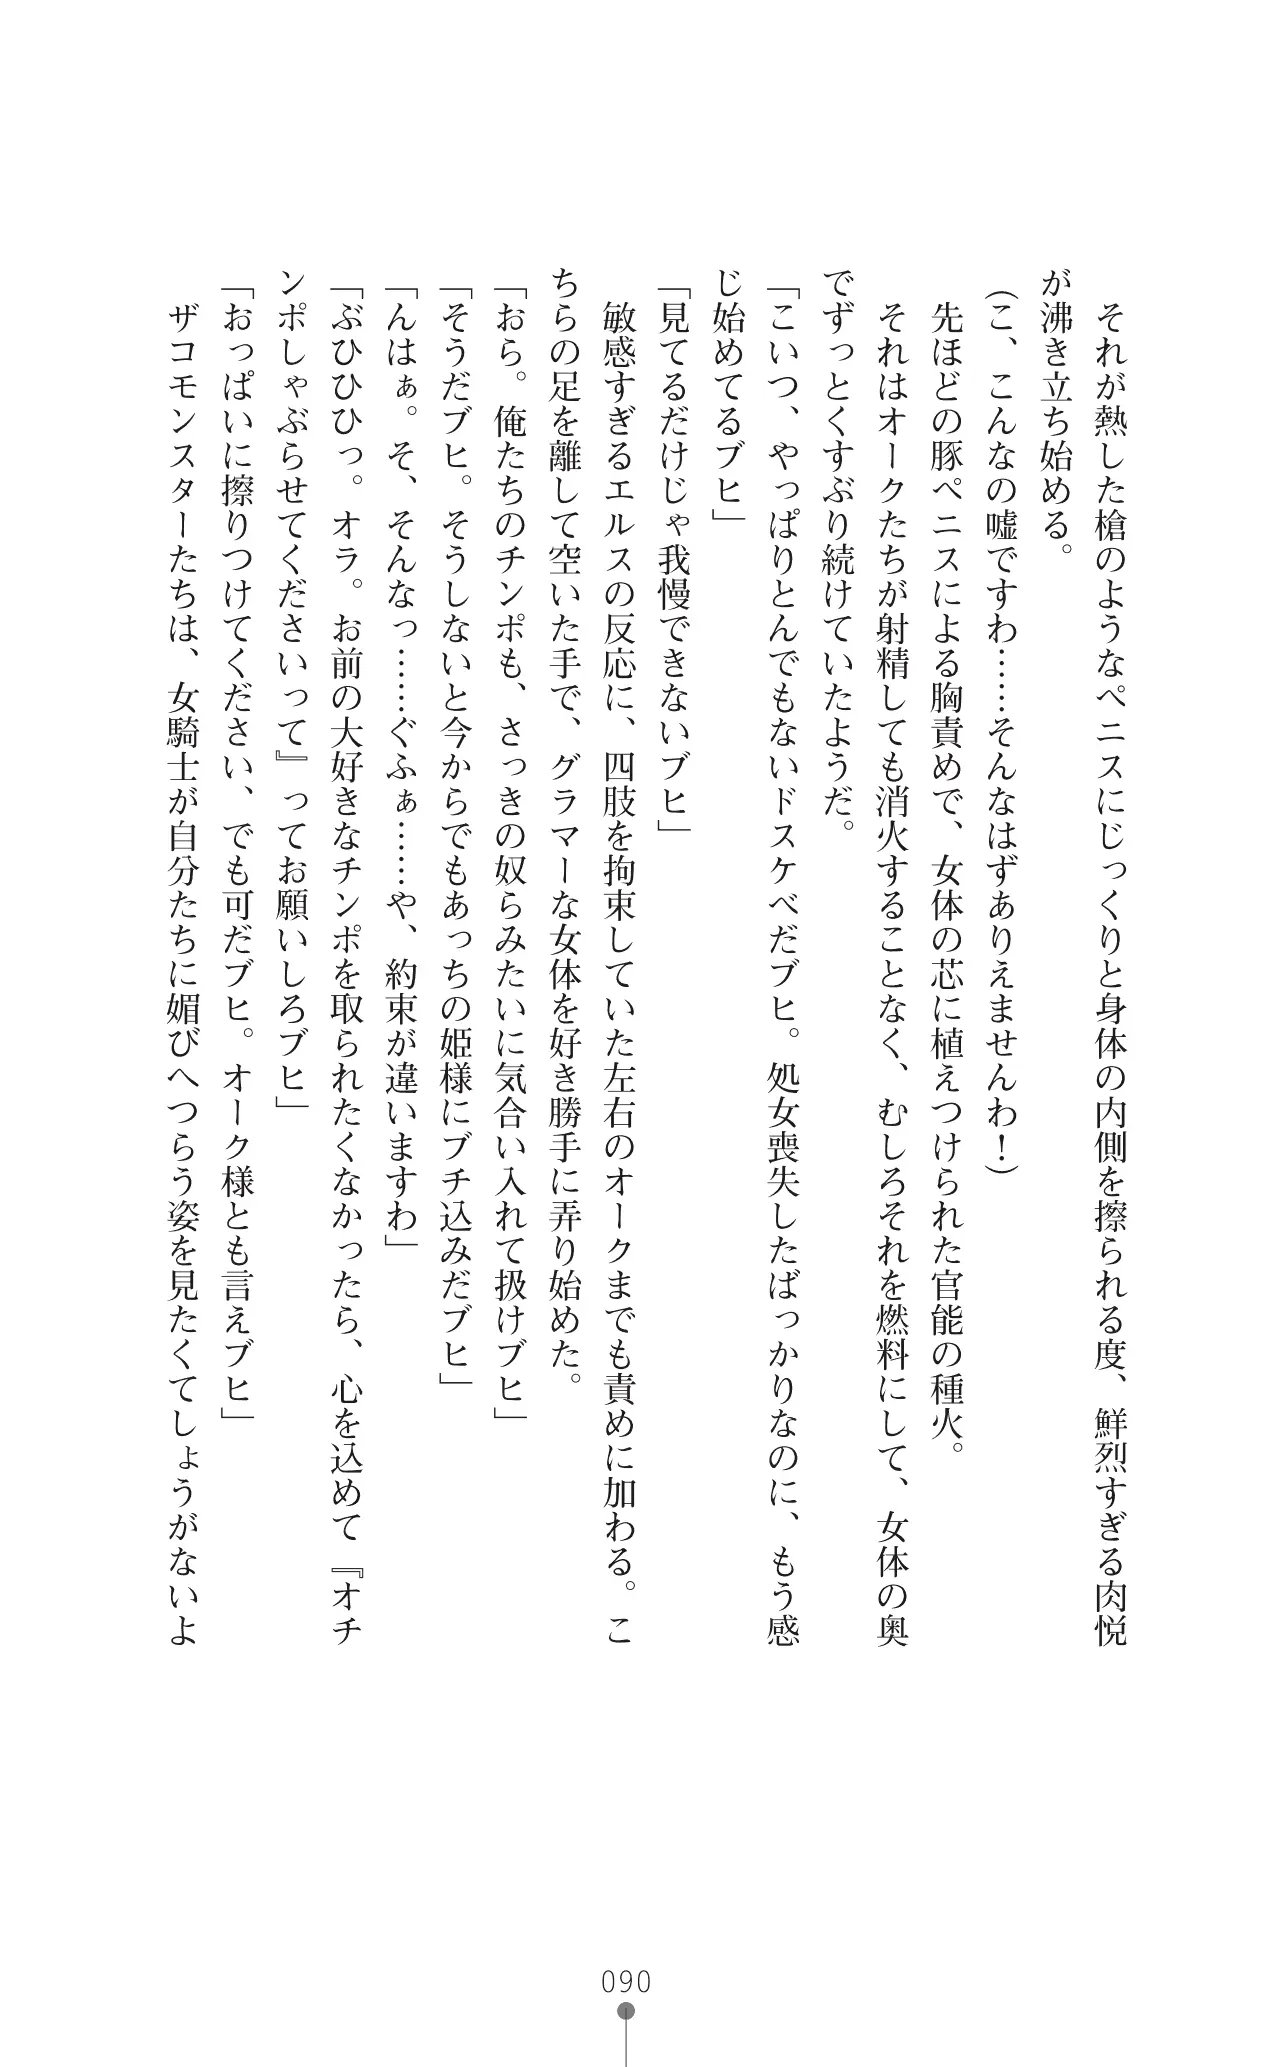 それが熱した槍のようなペニスにじっくりと身体の内側を擦られる度、鮮烈すぎる肉悦
が沸き立ち始める。
(こ、こんなの嘘ですわ……そんなはずありえませんわ！)
先ほどの豚ペニスによる胸責めで、女体の芯に植えつけられた官能の種火。
それはオークたちが射精しても消火することなく、むしろそれを燃料にして、女体の奥
でずっとくすぶり続けていたようだ。
「こいつ、やっぱりとんでもないドスケベだブヒ。処女喪失したばっかりなのに、もう感
じ始めてるブヒ」
「見てるだけじゃ我慢できないブヒ」
敏感すぎるエルスの反応に、四肢を拘束していた左右のオークまでも責めに加わる。こ
ちらの足を離して空いた手で、グラマーな女体を好き勝手に弄り始めた。
「おら。俺たちのチンポも、さっきの奴らみたいに気合い入れて扱けブヒ」
「そうだブヒ。そうしないと今からでもあっちの姫様にブチ込みだブヒ」
「んはぁ。そ、そんなっ……ぐふぁ……や、約束が違いますわ」
「ぶひひひっ。オラ。お前の大好きなチンポを取られたくなかったら、心を込めて『オチ
ンポしゃぶらせてくださいって』ってお願いしろブヒ」
「おっぱいに擦りつけてください、でも可だブヒ。オーク様とも言えブヒ」
ザコモンスターたちは、女騎士が自分たちに媚びへつらう姿を見たくてしょうがないよ
090